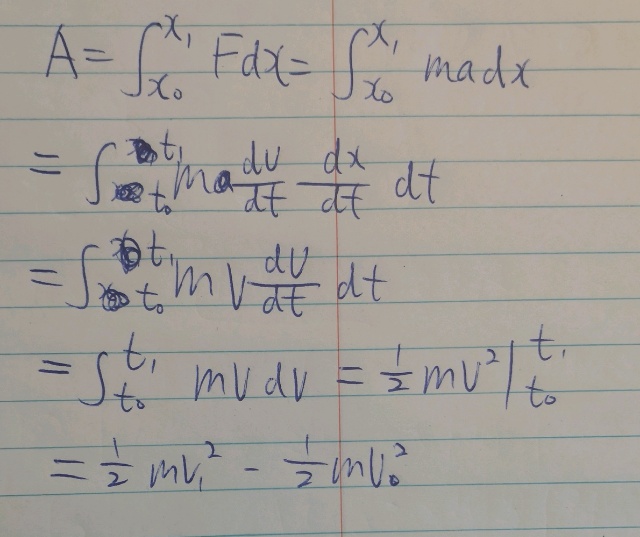 A = ∫_{x₀}^{x₁} Fdx = ∫_{x₀}^{x₁} madx
= ∫_{t₀}^{t₁} m dv/dt dx/dt dt
= ∫_{t₀}^{t₁} mv dv/dt dt
= ∫_{t₀}^{t₁} mvdv = 1/2 mv² |_{t₀}^{t₁}
= 1/2 mv₁² - 1/2 mv₀²